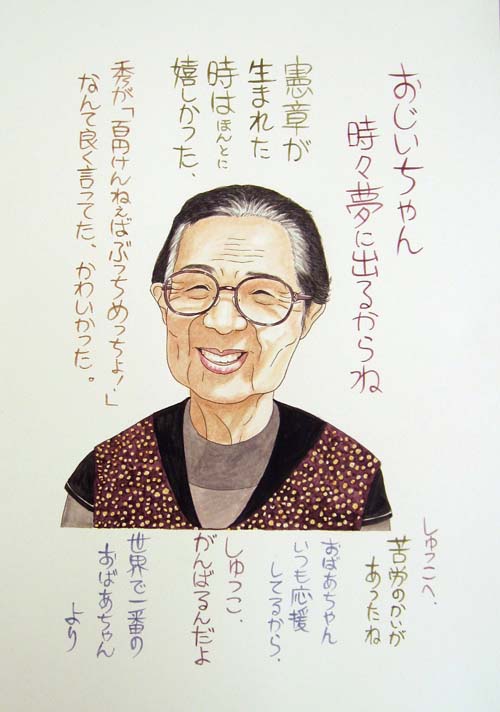 おじいちゃん
時々夢に出るからね
憲章が
生まれた
時はほんとに
嬉しかった、
秀が「百円けんねぇばぶっちめっちょ!」
なんて良く言ってた、かわいかった。
しゅっこへ、
苦労のかいが
あったね
おばあちゃん
いつも応援
してるから、
しゅっこ、
がんばるんだよ
世界で一番の
おばあちゃん
より